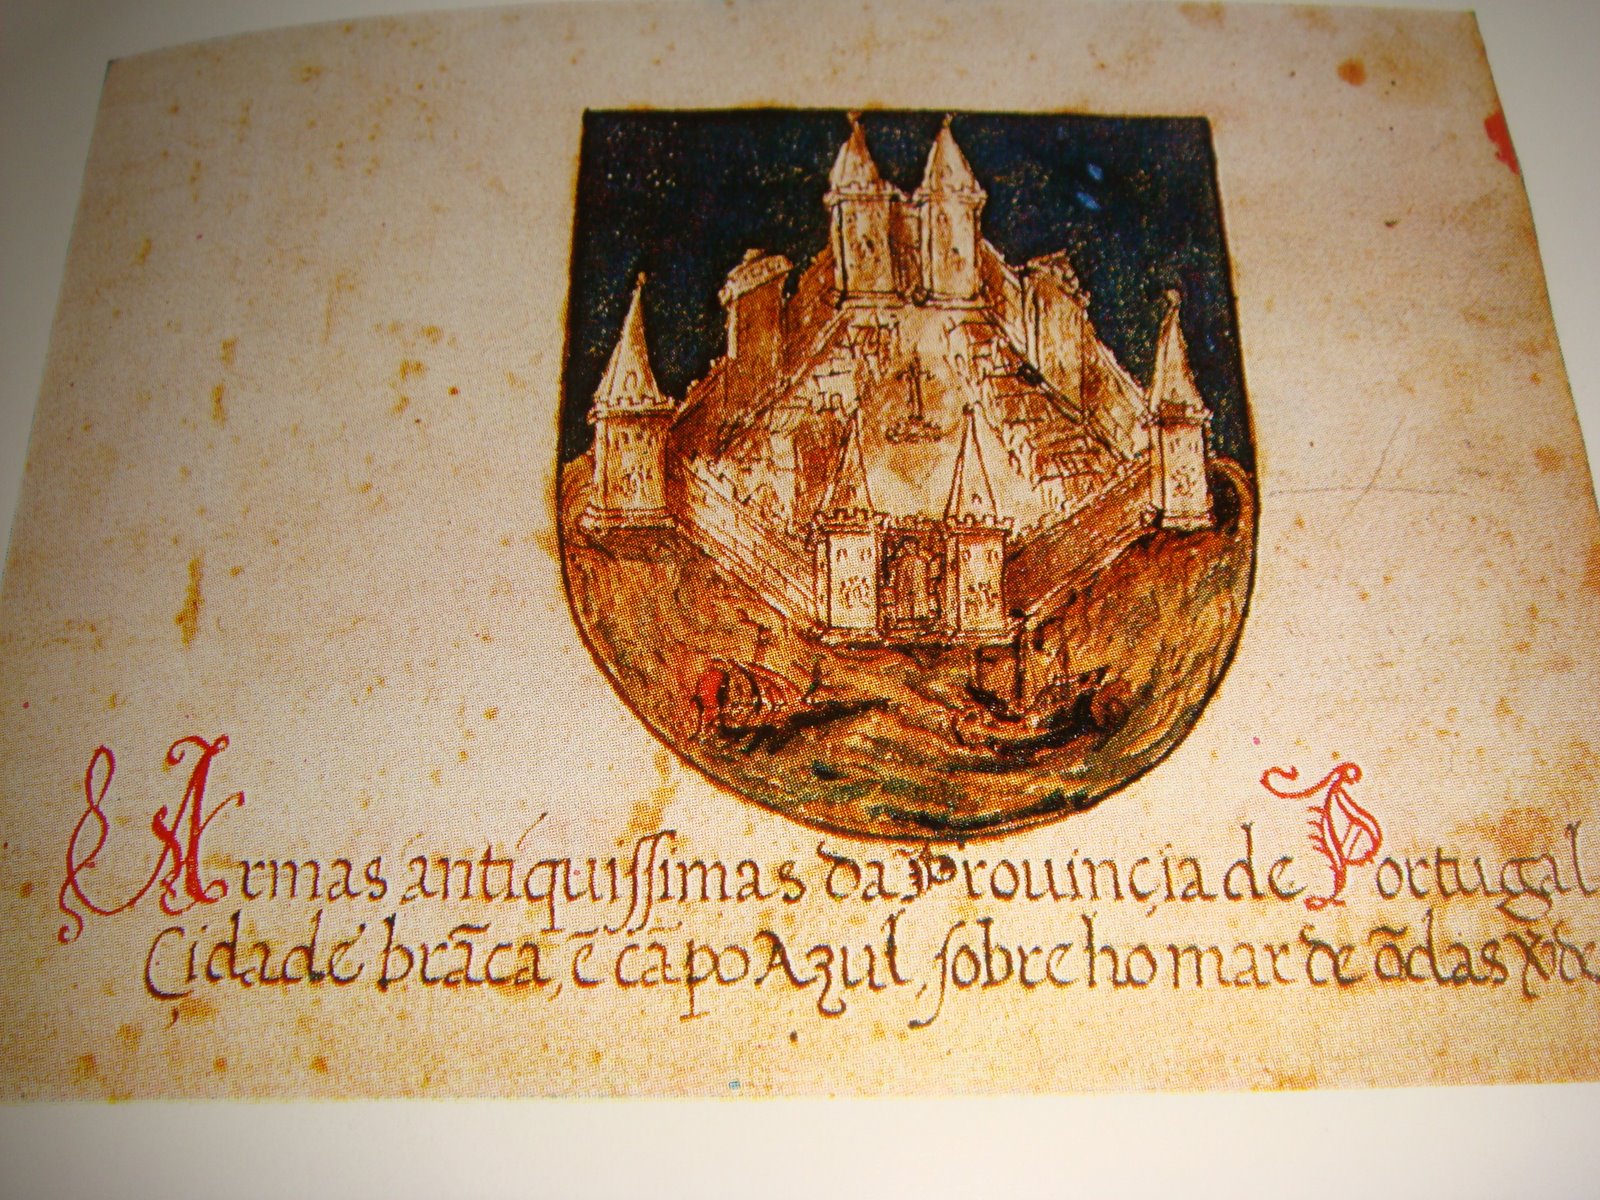 Armas antiquissimas da Prouinçia de Portugal
Çidade brãca, ẽ cãpo Azul, sobre ho mar de õdas